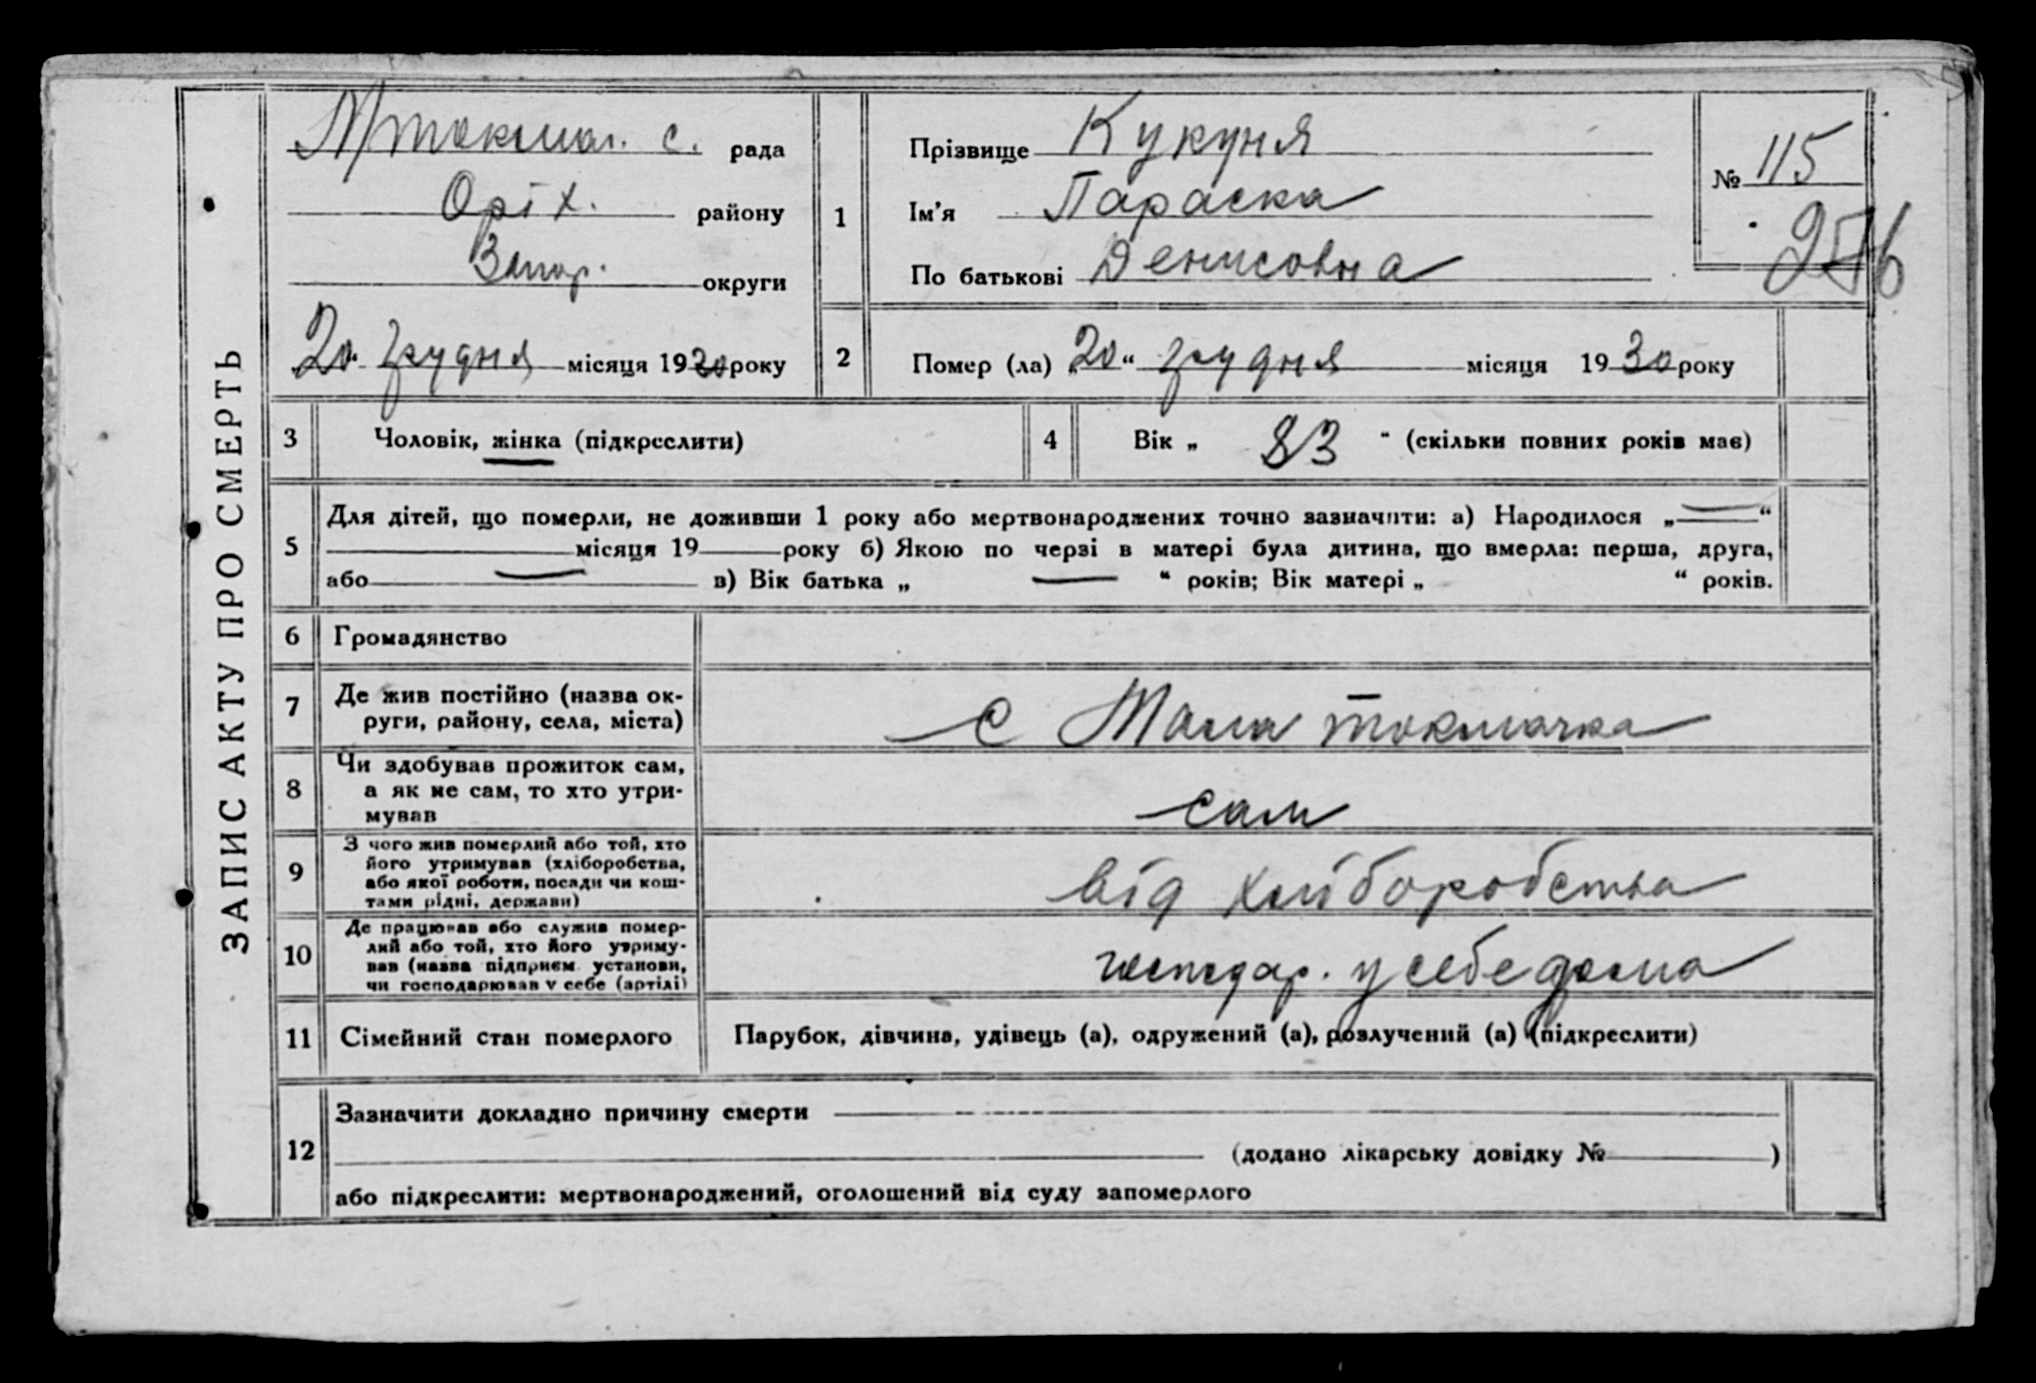 ЗАПИС АКТУ ПРО СМЕРТЬ
М/токмал. с. рада
Оріх. району
Запор. округи
20 грудня місяця 1930 року
1
Прізвище Кукуня
Ім'я Параска
По батькові Денисовна
№ 115
2
Помер (ла) „20“ грудня місяця 1930 року
3 Чоловік, жінка (підкреслити)
4 Вік „ 83 “ (скільки повних років має)
5
Для дітей, що померли, не доживши 1 року або мертвонароджених точно зазначити: а) Народилося „—“
місяця 19 року б) Якою по черзі в матері була дитина, що вмерла: перша, друга,
або — в) Вік батька „ — “ років; Вік матері „ “ років.
6 Громадянство
7 Де жив постійно (назва ок-
руги, району, села, міста)
с Мала токмачка
8 Чи здобував прожиток сам,
а як не сам, то хто утри-
мував
сам
9 З чого жив померлий або той, хто
його утримував (хліборобства,
або якої роботи, посади чи кош-
тами рідні, держави)
від хліборобства
10 Де працював або служив помер-
лий або той, хто його утриму-
вав (назва підприєм. установи,
чи господарював у себе (артілі)
господар. у себе дома
11 Сімейний стан померлого
Парубок, дівчина, удівець (а), одружений (а), розлучений (а) (підкреслити)
12
Зазначити докладно причину смерти
(додано лікарську довідку № )
або підкреслити: мертвонароджений, оголошений від суду запомерлого